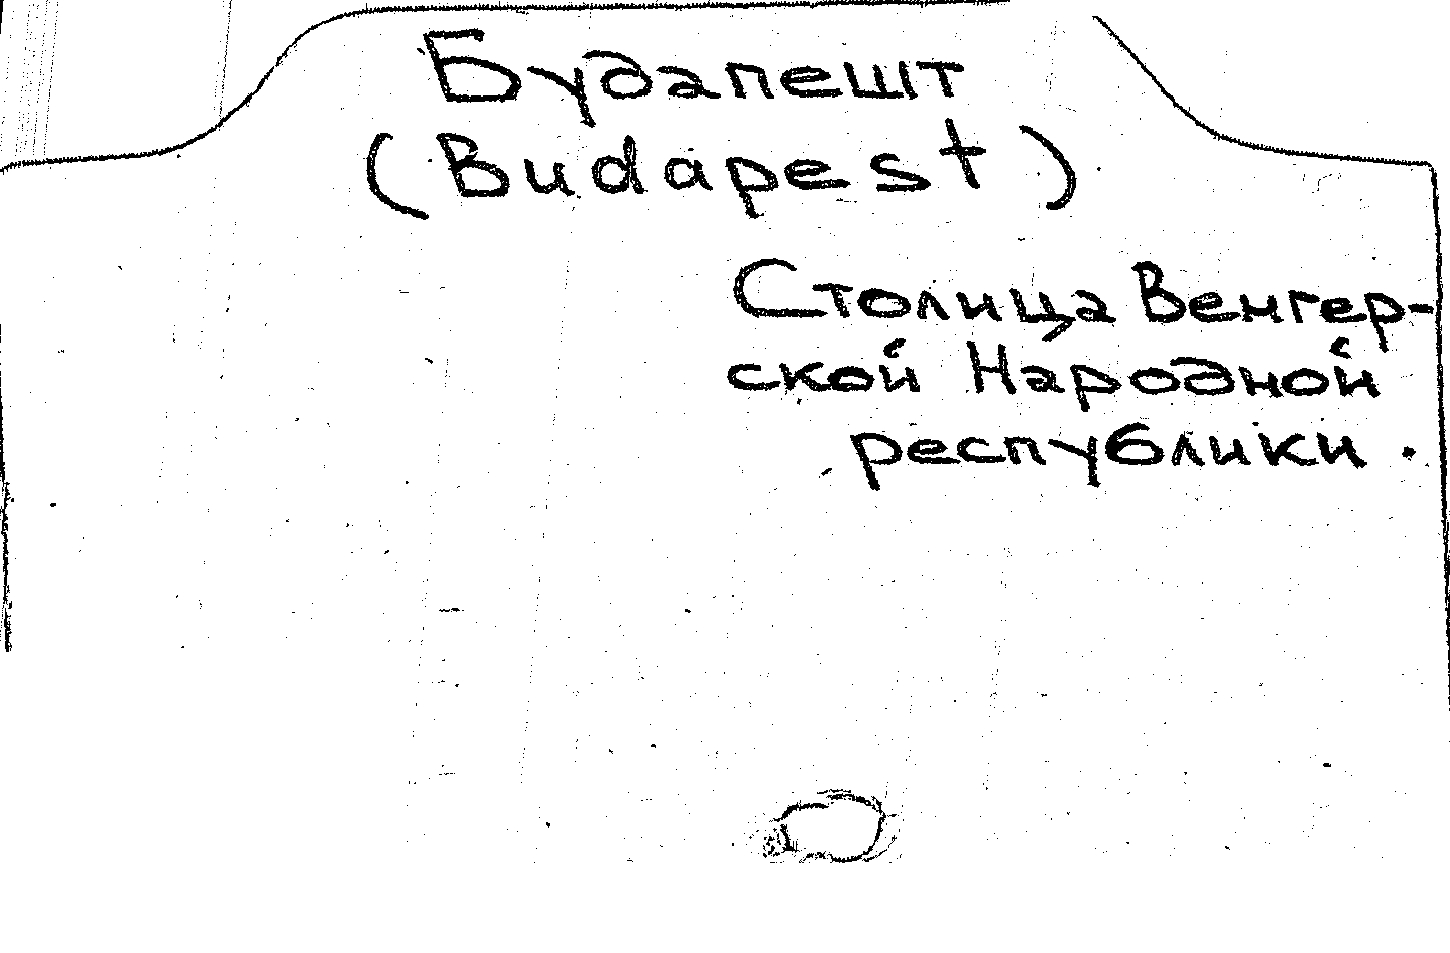 Будапешт
(Budapest)
Столица Венгер-
ской Народной
республики.